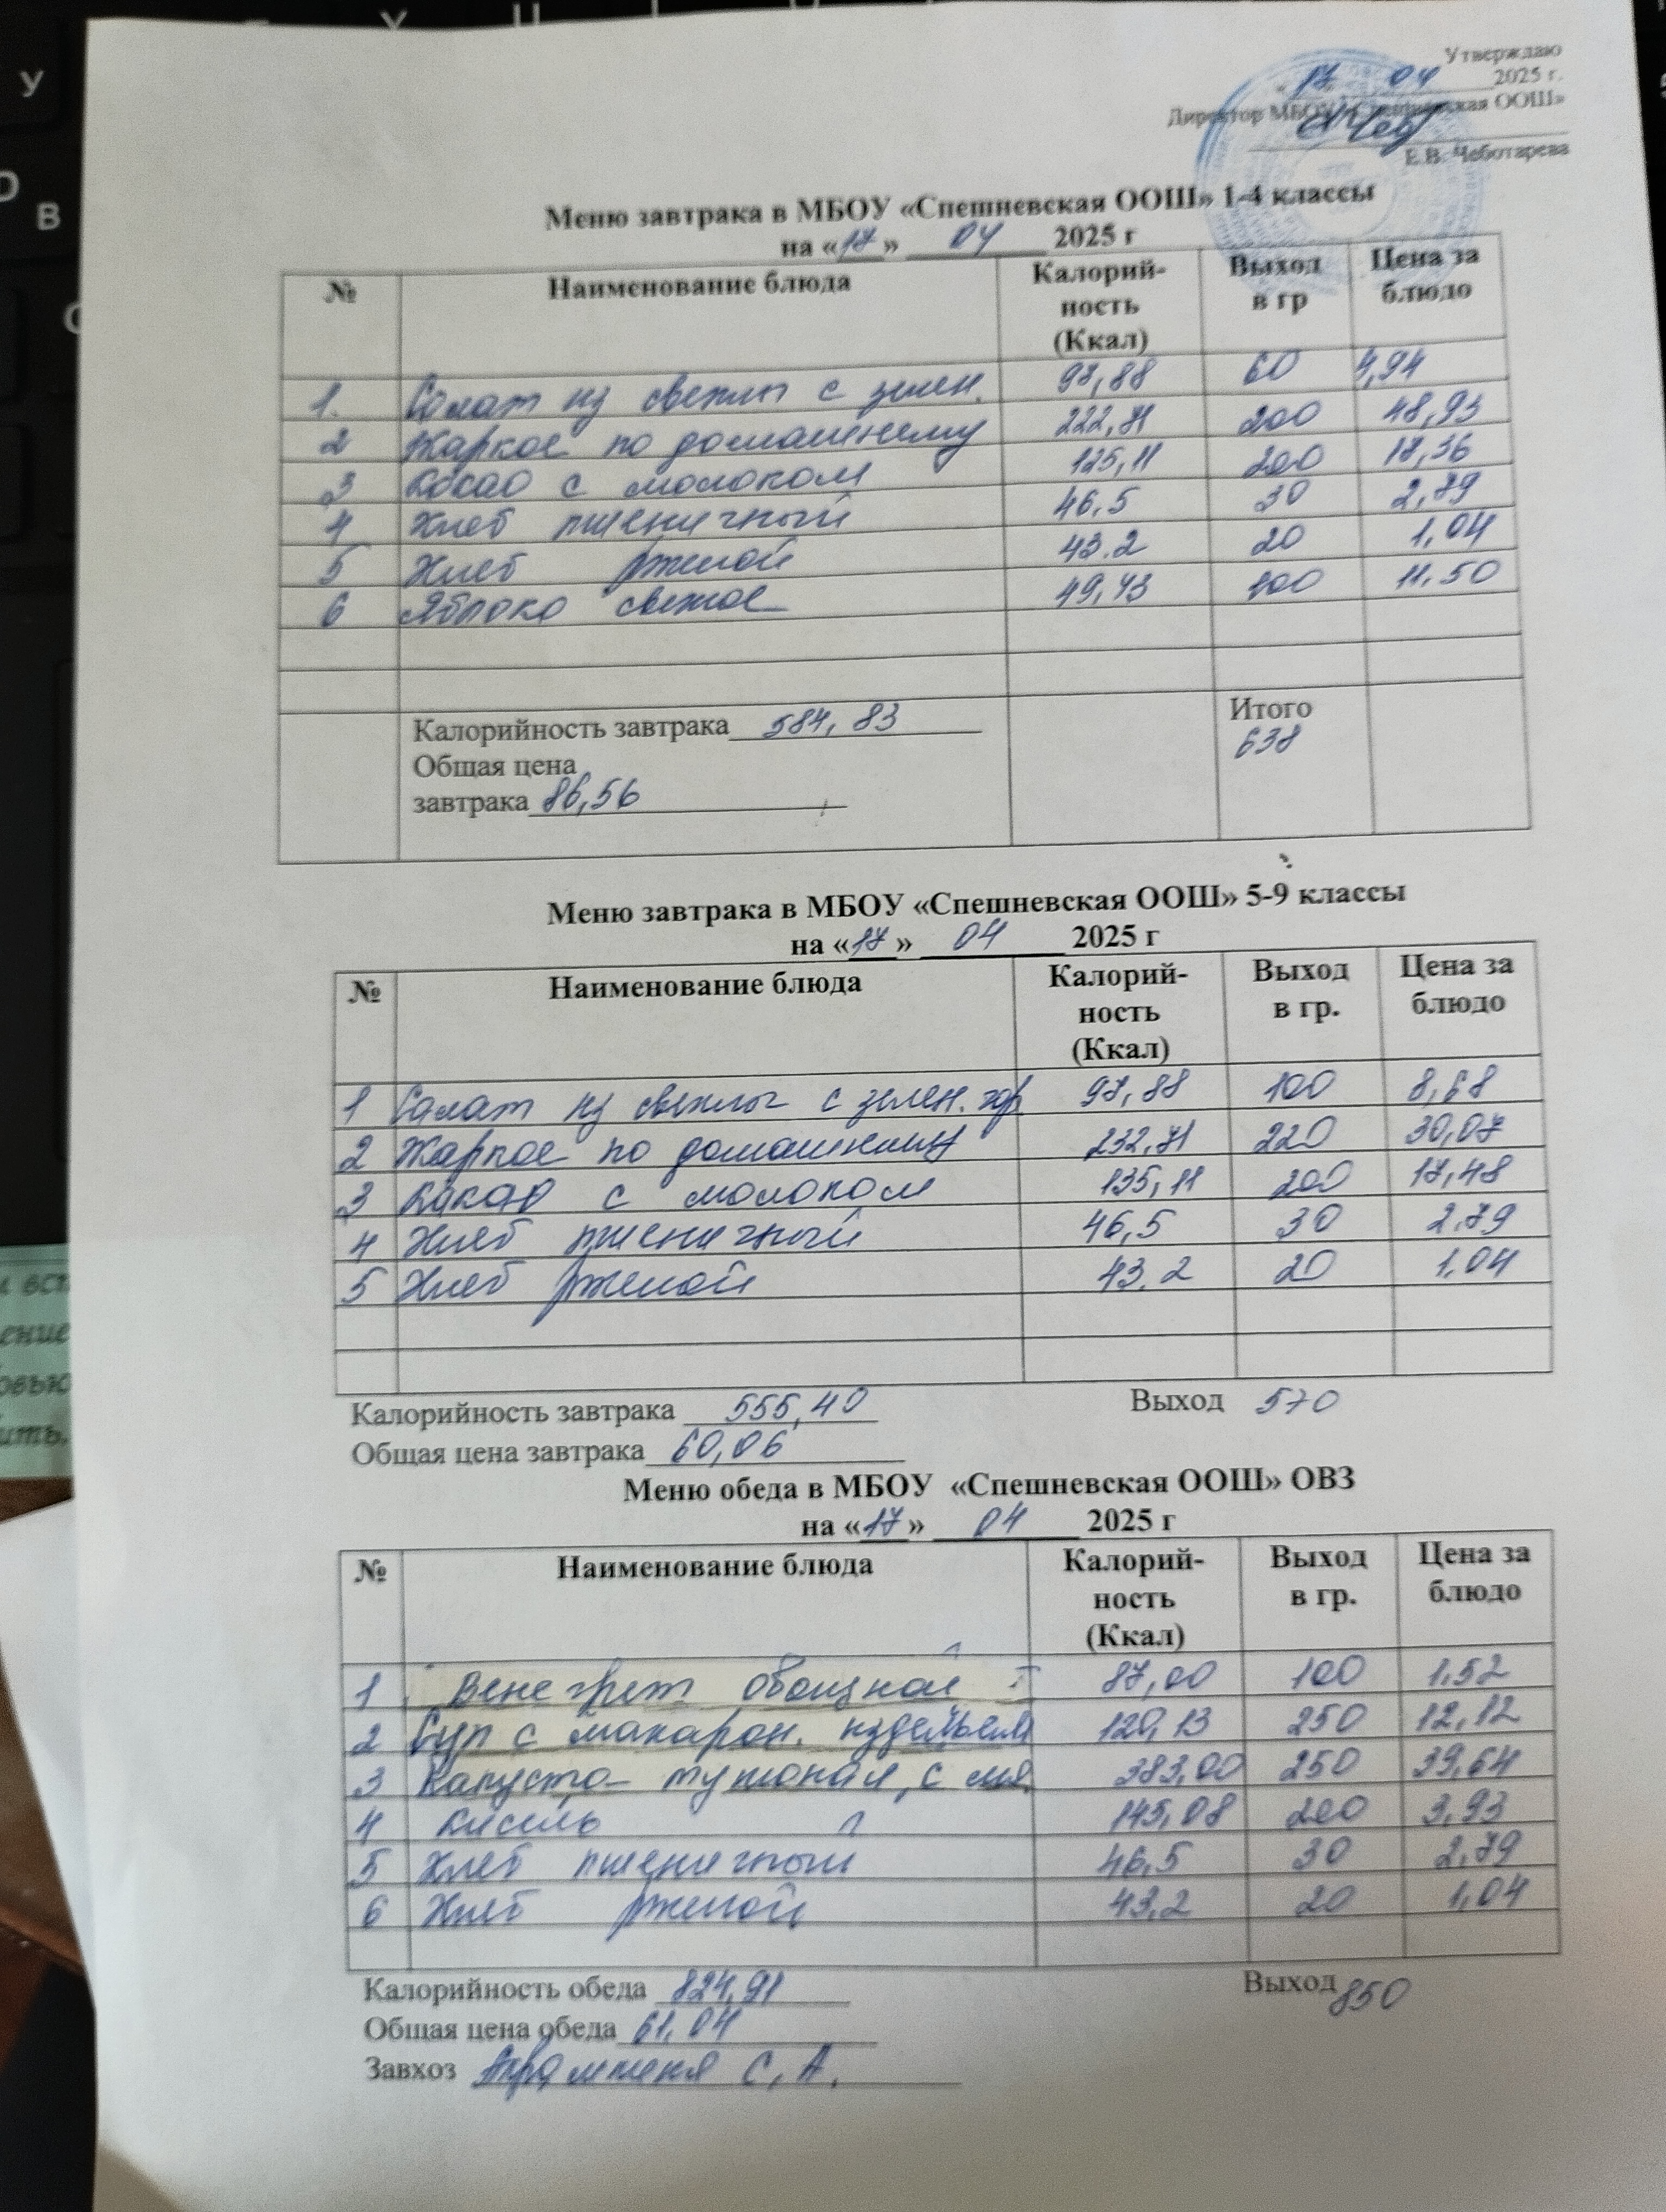 Утверждаю
17 04 2025 г.
Директор МБОУ «Спешневская ООШ»
Е.В. Чеботарева
Меню завтрака в МБОУ «Спешневская ООШ» 1-4 классы
на «17» 04 2025 г
№ Наименование блюда Калорий-ность (Ккал) Выход в гр Цена за блюдо
1. Салат из свеклы с зелен. 97,88 60 4,94
2 Жаркое по домашнему 222,71 200 48,93
3 Какао с молоком 125,11 200 18,36
4 Хлеб пшеничный 46,5 30 2,79
5 Хлеб ржаной 43.2 20 1,04
6 Яблоко свежее 49,43 100 11.50
Калорийность завтрака 584,83 Итого
638
Общая цена
завтрака 86,56
Меню завтрака в МБОУ «Спешневская ООШ» 5-9 классы
на «17» 04 2025 г
№ Наименование блюда Калорий-ность (Ккал) Выход в гр. Цена за блюдо
1 Салат из свеклы с зелен. гор 97,88 100 8,68
2 Жаркое по домашнему 232,71 220 30,07
3 Какао с молоком 135,11 200 17,48
4 Хлеб пшеничный 46,5 30 2.79
5 Хлеб ржаной 43.2 20 1,04
Калорийность завтрака 555,40 Выход 570
Общая цена завтрака 60,06
Меню обеда в МБОУ «Спешневская ООШ» ОВЗ
на «17» 04 2025 г
№ Наименование блюда Калорий-ность (Ккал) Выход в гр. Цена за блюдо
1 Венегрет овощной 87,00 100 1.52
2 Суп с макарон. издельем 120,13 250 12,12
3 Капуста тушоная, с мя 383,00 250 39,64
4 Кисель 145,08 200 3,93
5 Хлеб пшеничный 46,5 30 2.79
6 Хлеб ржаной 43,2 20 1,04
Калорийность обеда 824,91 Выход 850
Общая цена обеда 61.04
Завхоз С.А.